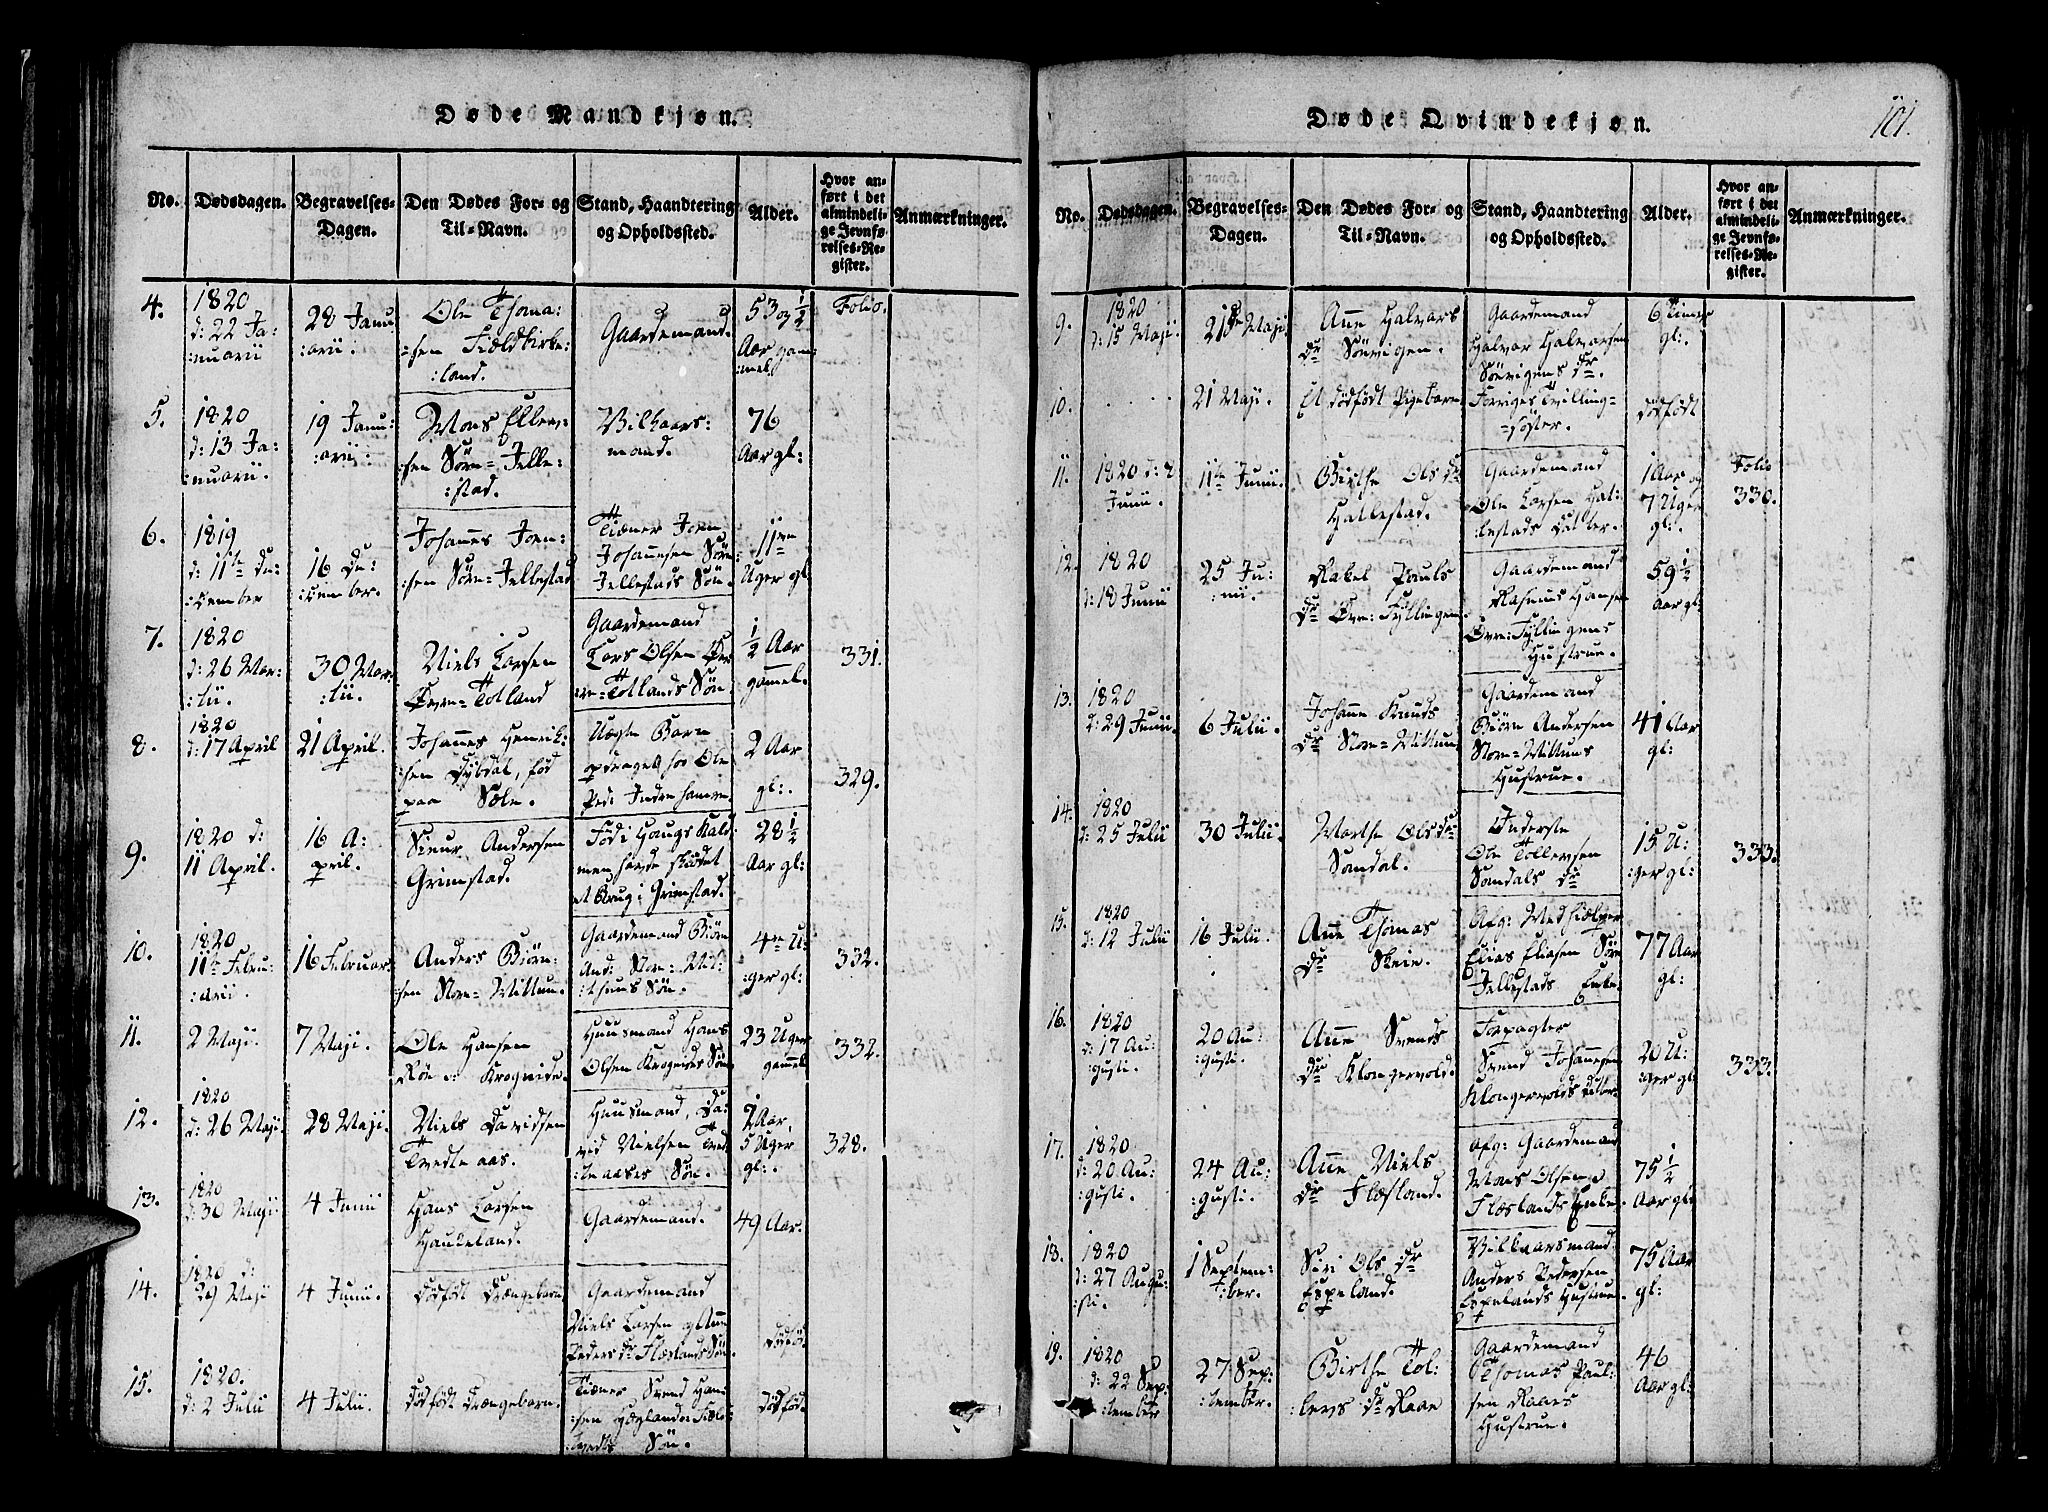 Døde Mandkjøn.
No.
Dødsdagen.
Begravelses-
Dagen.
Den Dødes For- og
Til-Navn.
Stand, Haandtering
og Opholdssted.
Alder.
Hvor an-
ført i det
almindeli-
ge Jevnfø-
relses-Re-
gister.
Anmærkninger.
4.
1820
d: 22 Ja-
:nuarii
28 Janu
:arii.
Ole Thoma:
:sen
:land.
Gaardemand.
53 og ½
Aar gam-
:mel.
Folio.
5.
1820
d: 13 Ja-
:nuarii.
19 Janu:
:arii.
Mons Ellen:
:sen Søre-Jelle:
:stad.
Vilkaars:
mand.
76
Aar gl:
6.
1819
d: 11te De:
:cember
16 De:
:cember.
Johannes Joen:
:sen Søre-Jellestad
Tiæner Joen
Johannesen Søre
Jellestads Søn.
11ve
Uger gl:
7.
1820
d: 26 Mar:
:tii.
30 Mar:
:tii.
Niels Larsen
Øvre-Totland
Gaardemand
Lars Olsen Øv:
re-Totlands Søn.
½ Aar
gammel.
331.
8.
1820
d: 17 April
21 April.
Johannes Henrik:
:sen Dybdal, fød
paa Sæle.
Uægte Barn
opdraget hos Ole
Ped: Indre
2 Aar
gl:.
329.
9.
1820 d:
11 April.
16 A:
pril.
Siur Andersen
Grimstad.
Fød i
men havde
et Brug i Grimstad.
28 ½
Aar gl:
10.
1820
11te Febru:
:arii.
16 Februar.
Anders Biørn:
:sen Nore-Wittun.
Gaardemand Biørn
And: Nore-Wit:
:tuns Søn.
4re U:
:ger gl:
332.
11.
2 Maji.
7 Maji.
Ole Hansen
Krognide.
Huusmand Hans
Olsen Krognides Søn
23 Uger
gammel
332.
12.
1820
d: 26 Maji.
28 Maji.
Niels Davidsen
Tvedteaas.
Huusmand, Da:
vid Nielsen Tved
:teaases Søn.
2 Aar,
5 Uger
gl:.
328.
13.
1820
d: 30 Maji
4 Junii
Hans Larsen
Haukeland.
Gaardemand.
49 Aar.
14.
1820 d:
29 Maji
4 Junii.
dødfødt Drængebarn
Gaardemand
Niels Larsen og Anne
Peders Dr Flæslands Søn.
dødfød.
15.
1820.
d: 2 Julii
4 Julii.
dødfødt Drængebarn.
Tiænes Svend Han:
:sen
:tvedts Søn.
dødfød.
Døde Qvindekjøn.
101.
No.
Dødsdagen.
Begravelses-
Dagen.
Den Dødes For- og
Til-Navn.
Stand, Haandtering
og Opholdssted.
Alder.
Hvor an-
ført i det
almindeli-
ge Jevnfø-
relses-Re-
gister.
Anmærkninger.
9.
1820
d: 15 Maji.
21de Maji.
Anne Halvors
Dr Sørvigen.
Gaardemand
Halvor Halvorsen
Sørvigens Dr.
6 Timer
gl:.
10.
21 Maji.
Et dødfødt Pigebarn
Forriges Tvilling-
:søster.
dødfødt
11.
1820 d: 2
Junii.
11te Junii.
Birthe Ols Dr
Hallestad.
Gaardemand
Ole Larsen Hal:
:lestads Datter.
1 Aar og
7 Uger
gl:.
Folio
330.
12.
1820
d: 18 Junii
25 Ju:
:nii.
Rakel Pauls
Dr Øvre: Fyllingen.
Gaardemand
Rasmus Hansen
Øvre: Fyllingens
Hustrue.
59 ½
Aar gl:
13.
1820
d: 29 Junii.
6 Julii.
Johanne Knuds
Dr Nore-Wittun.
Gaardemand
Biørn Andersen
Nore-Wittuns
Hustrue.
41 Aar
gl:
14.
1820
d: 25 Julii
30 Julii.
Marthe Ols Dr
Sandal.
Inderste
Ole Tollevsen
Sandals Dr
15 U:
:ger gl:
333.
15.
1820
d: 12 Julii
16 Julii.
Anne Thomas
Dr Skeie.
Afg: Medhiælper
Elias Eliasen Søre
Jellestads Enke.
77 Aar
gl:
16.
1820
d: 17 Au:
:gusti.
20 Au:
:gusti.
Anne Svends
Dr Klongervold.
Forpagter
Svend Johannesen
Klongervolds Datter
20 U:
:ger gl:
333.
17.
1820
d: 20 Au:
:gusti.
24 Au:
:gusti.
Anne Niels
Dr Flæsland.
Afg: Gaardemand
Mons Olsen
Flæslands Enke.
75 ½
Aar gl:
18.
1820
d: 27 Augu:
:sti.
1 Septem:
:ber.
Siri Ols Dr
Espeland.
Vilkaarsmand
Anders Pedersen
Espelands Hustrue.
75 Aar
gl:
19.
1820
d: 22 Sep:
:tember
27 Sep:
:tember.
Birthe Tol:
levs Dr Raae
Gaardemand
Thomas Paul:
sen Raaes
Hustrue.
46
Aar gl: